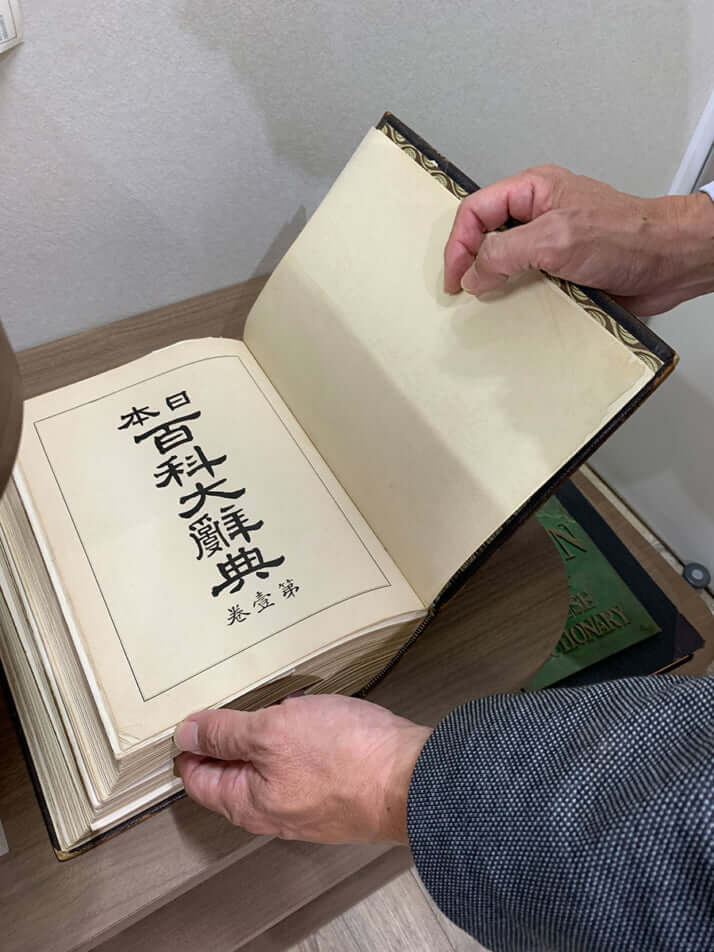 日本
百科大辭典
第壹卷
N
SH
TIONARY